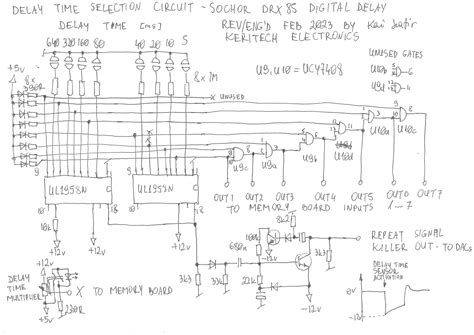 DELAY TIME SELECTION CIRCUIT - SOCHOR DRX 85 DIGITAL DELAY
DELAY TIME [ms]
REV/ENG'D FEB 2023 BY
KERITECH ELECTRONICS
640 320 160 80
40 20 10 5
U9, U10 = UCY7408
UNUSED GATES
U10b
+5V
8x
390R
8x 1M
X UNUSED
U10a
U10c
U9c
U9a
U9b
U10d
UL1958N
UL1953N
OUT1 OUT2 OUT3 OUT4 OUT5 OUT6 OUT7
TO MEMORY BOARD INPUTS 1...7
10k
+12V
+5V
+12V
8k2
100k
680n
3k3
33k
22k
3k3
-12V
REPEAT SIGNAL
KILLER OUT - TO DACs
DELAY TIME
SENSOR
ACTIVATION
0V
-12V
DELAY
TIME
MULTIPLIER
X TO MEMORY BOARD
220R